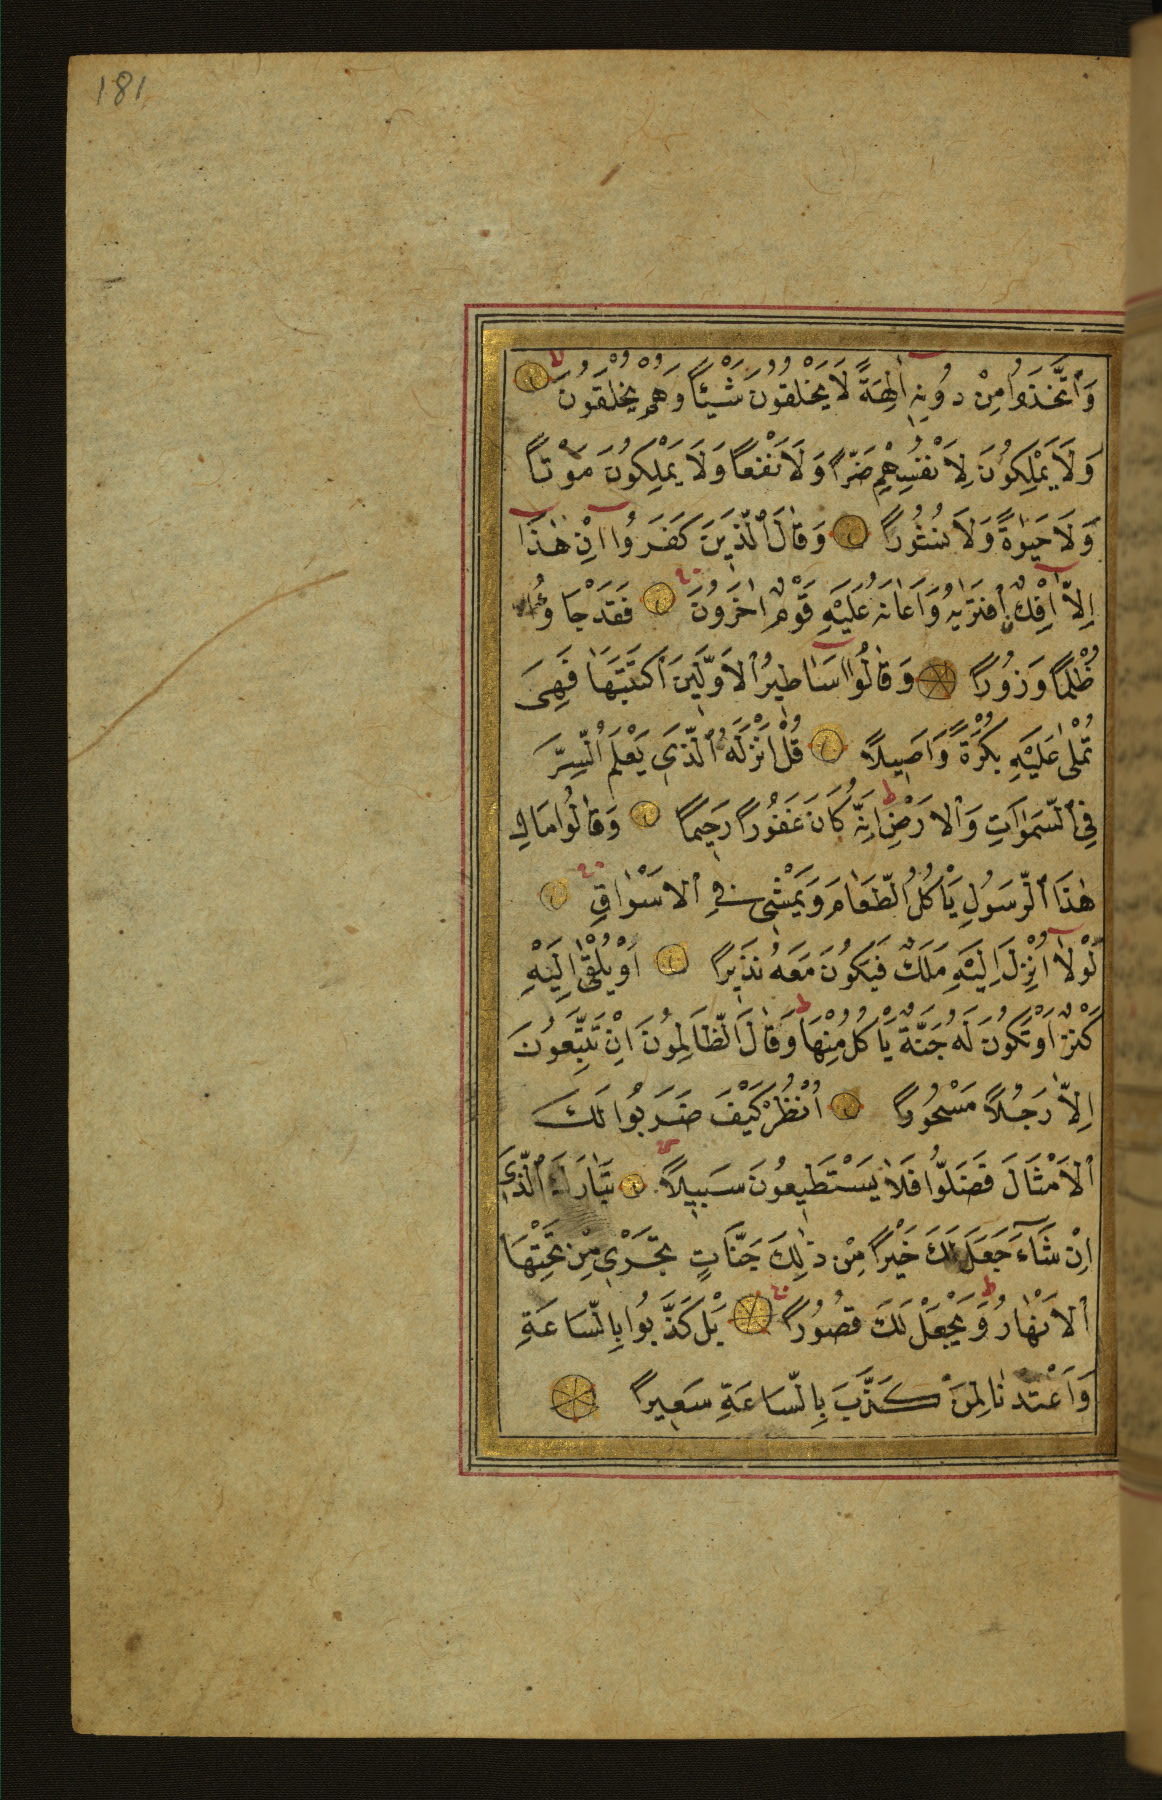 181
وَاتَّخَذُوا مِنْ دُونِهِ اٰلِهَةً لَا يَخْلُقُونَ شَيْئًا وَهُمْ يُخْلَقُونَ
وَلَا يَمْلِكُونَ لِاَنْفُسِهِمْ ضَرًّا وَلَا نَفْعًا وَلَا يَمْلِكُونَ مَوْتًا
وَلَا حَيٰوةً وَلَا نُشُورًا وَقَالَ الَّذِينَ كَفَرُوا اِنْ هٰذَا
اِلَّا اِفْكٌ افْتَرٰيهُ وَاَعَانَهُ عَلَيْهِ قَوْمٌ اٰخَرُونَ فَقَدْ جَاؤُ
ظُلْمًا وَزُورًا وَقَالُوا اَسَاطِيرُ الْاَوَّلِينَ اكْتَتَبَهَا فَهِيَ
تُمْلٰى عَلَيْهِ بُكْرَةً وَاَصِيلًا قُلْ اَنْزَلَهُ الَّذِي يَعْلَمُ السِّرَّ
فِي السَّمٰوَاتِ وَالْاَرْضِ اِنَّهُ كَانَ غَفُورًا رَحِيمًا وَقَالُوا مَالِ
هٰذَا الرَّسُولِ يَاْكُلُ الطَّعَامَ وَيَمْشِي فِي الْاَسْوَاقِ
لَوْلَا اُنْزِلَ اِلَيْهِ مَلَكٌ فَيَكُونَ مَعَهُ نَذِيرًا اَوْ يُلْقٰى اِلَيْهِ
كَنْزٌ اَوْ تَكُونُ لَهُ جَنَّةٌ يَاْكُلُ مِنْهَا وَقَالَ الظَّالِمُونَ اِنْ تَتَّبِعُونَ
اِلَّا رَجُلًا مَسْحُورًا اُنْظُرْ كَيْفَ ضَرَبُوا لَكَ
الْاَمْثَالَ فَضَلُّوا فَلَا يَسْتَطِيعُونَ سَبِيلًا تَبَارَكَ الَّذِي
اِنْ شَآءَ جَعَلَ لَكَ خَيْرًا مِنْ ذٰلِكَ جَنَّاتٍ تَجْرِي مِنْ تَحْتِهَا
الْاَنْهَارُ وَيَجْعَلْ لَكَ قُصُورًا بَلْ كَذَّبُوا بِالسَّاعَةِ
وَاَعْتَدْنَا لِمَنْ كَذَّبَ بِالسَّاعَةِ سَعِيرًا